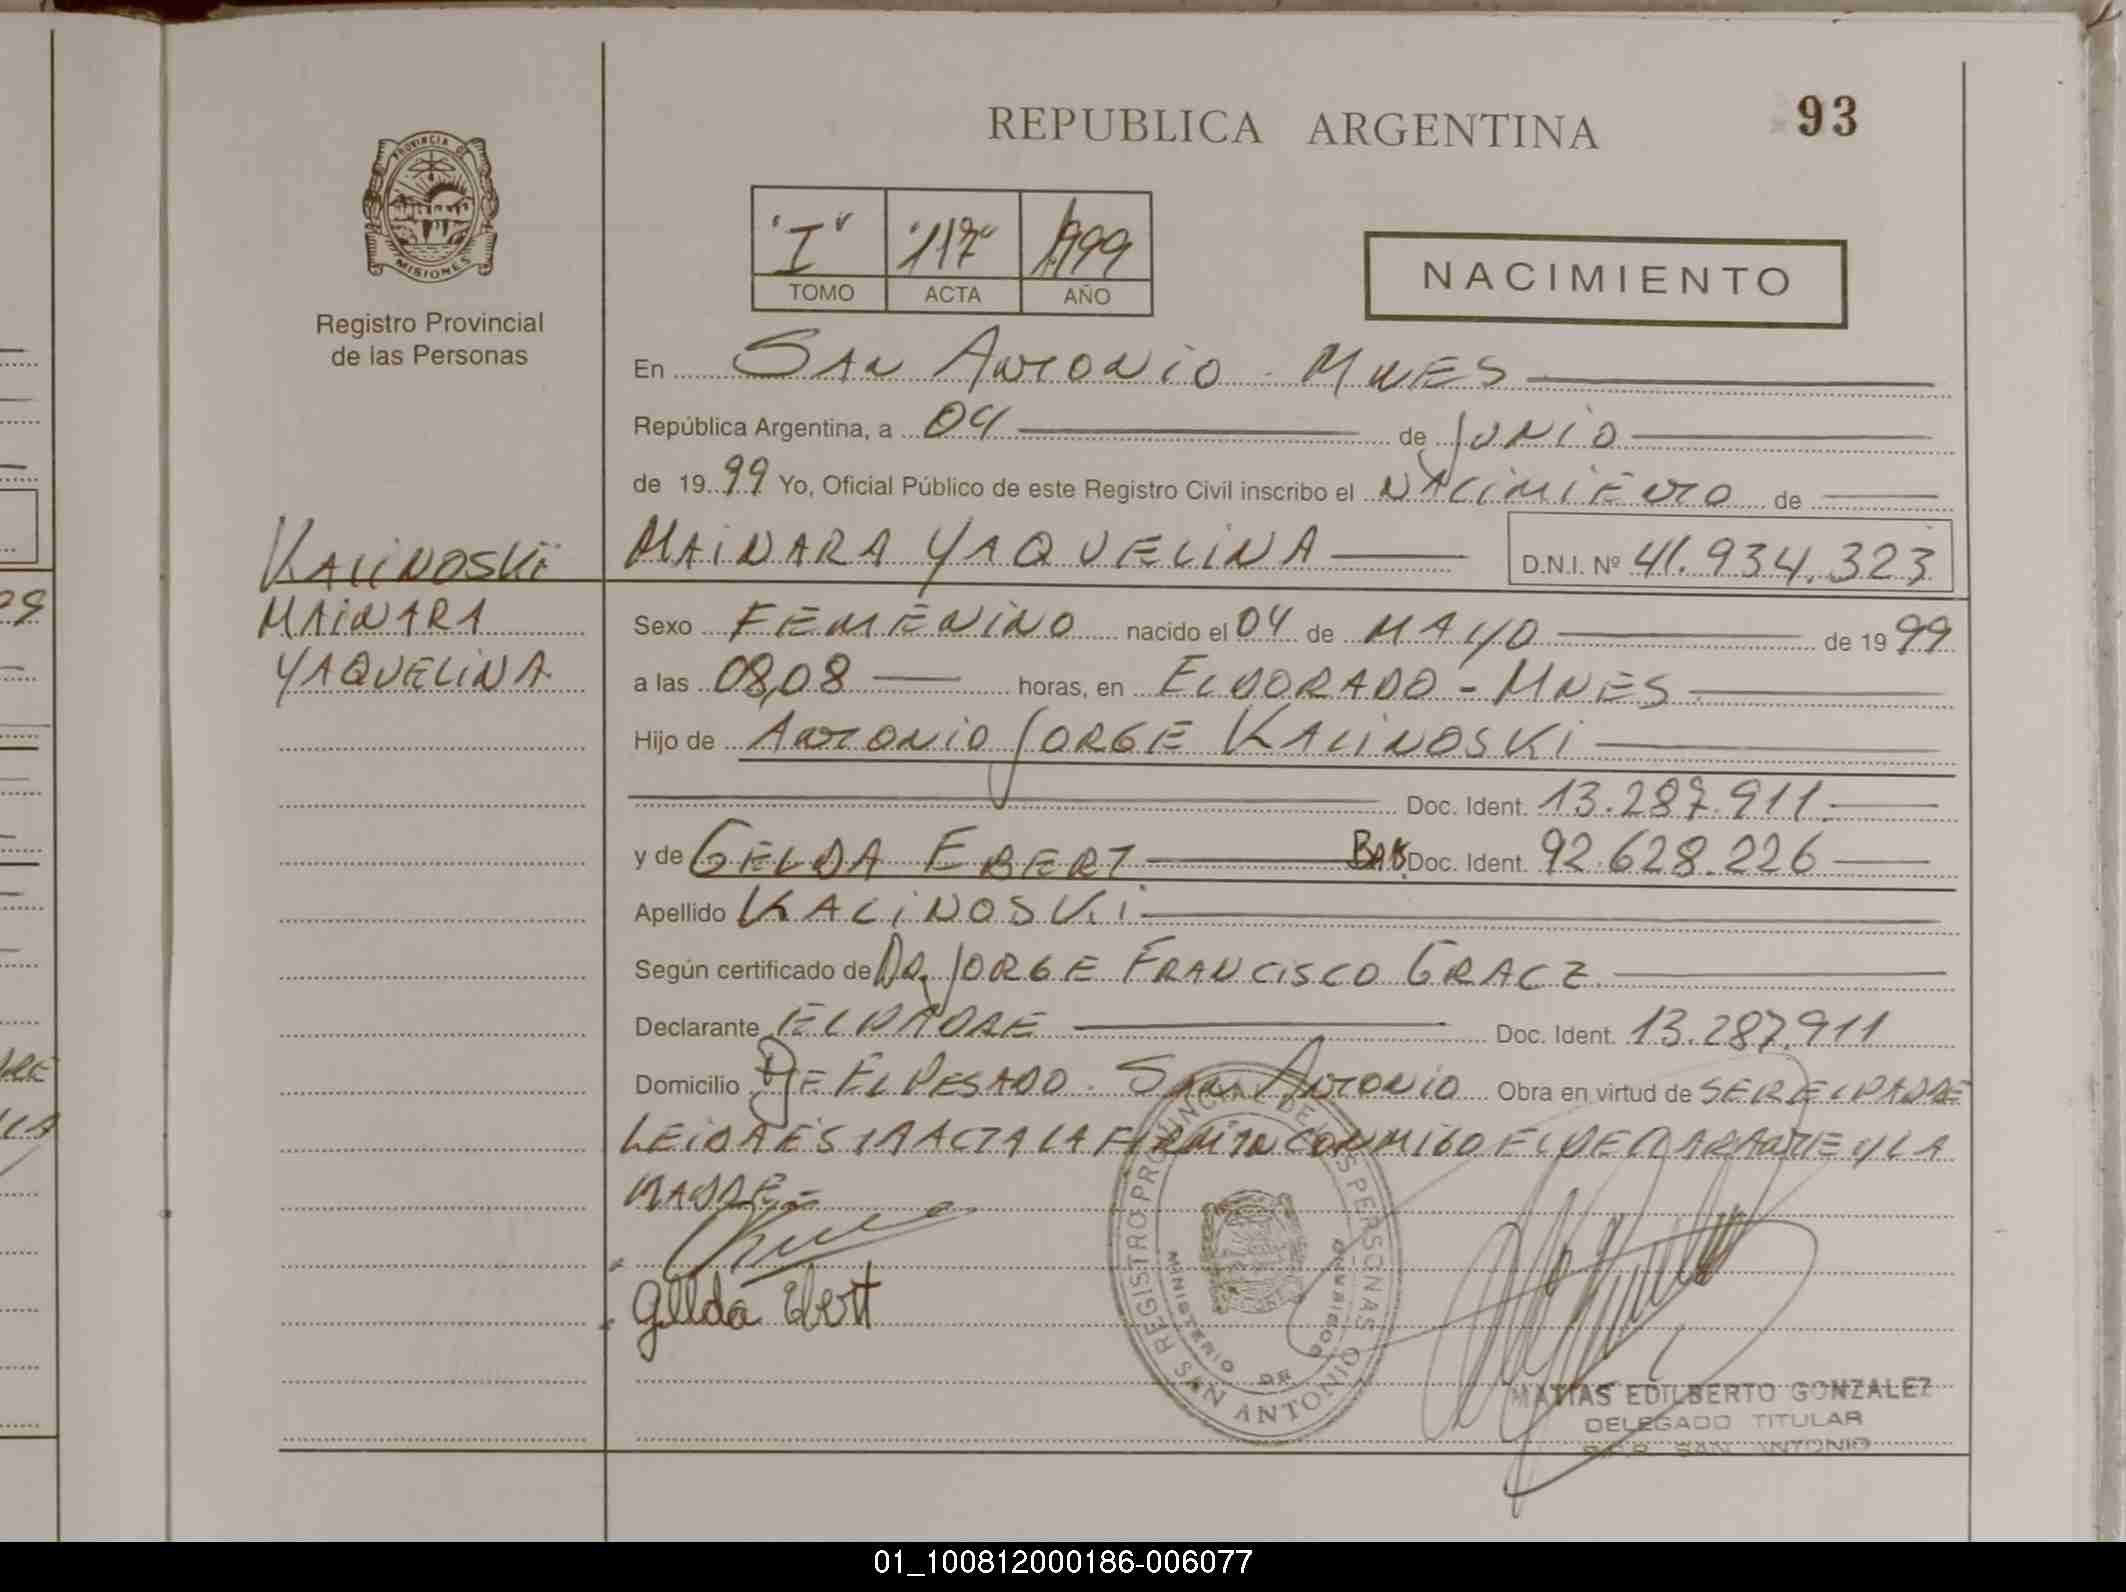 REPUBLICA ARGENTINA
93
PROVINCIA DE
MISIONES
Registro Provincial
de las Personas
"I" "117" 1999
TOMO ACTA AÑO
NACIMIENTO
En SAN ANTONIO - MNES
República Argentina, a 04 de JUNIO
de 1999 Yo, Oficial Público de este Registro Civil inscribo el NACIMIENTO de
KALINOSKI
MAINARA
YAQUELINA
MAINARA YAQUELINA D.N.I. Nº 41.934.323
Sexo FEMENINO nacido el 04 de MAYO de 1999
a las 08,08 horas, en ELDORADO - MNES
Hijo de ANTONIO JORGE KALINOSKI
Doc. Ident. 13.287.911
y de GELDA EBERT Doc. Ident. 92.628.226
Apellido KALINOSKI
Según certificado de DR. JORGE FRANCISCO GRACZ
Declarante EL PADRE Doc. Ident. 13.287.911
Domicilio EL PESADO - SAN ANTONIO Obra en virtud de SER EL PADRE
LEIDA ESTA ACTA LA FIRMAN CONMIGO EL DECLARANTE Y LA
MADRE -
Gellda Ebert
REGISTRO PROVINCIAL DE LAS PERSONAS
MINISTERIO DE GOBIERNO
SAN ANTONIO
MATIAS EDILBERTO GONZALEZ
DELEGADO TITULAR
R.P.P. SAN ANTONIO
01_100812000186-006077